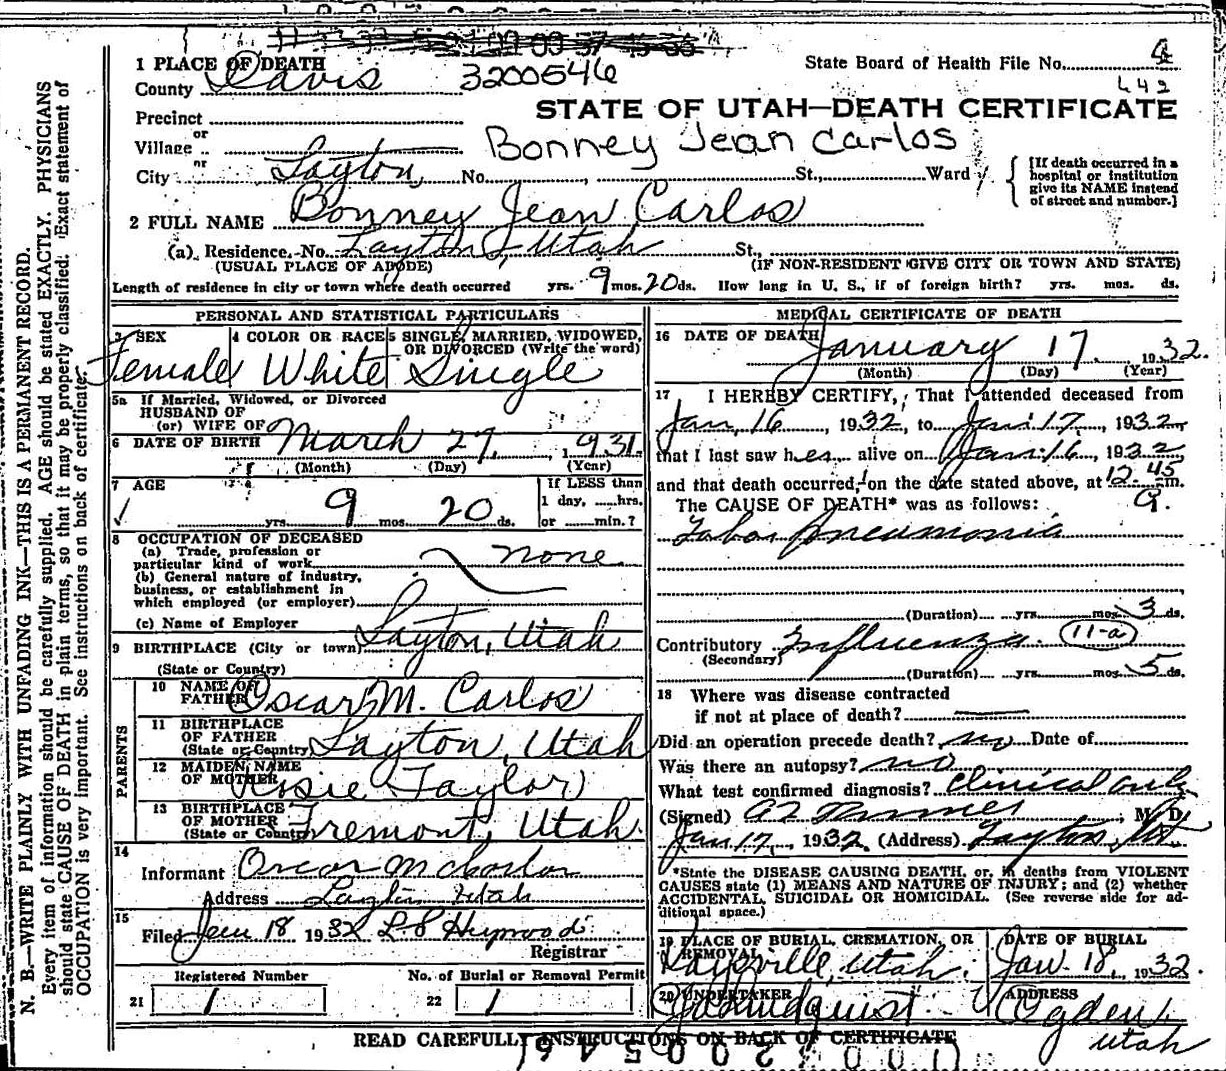 1 PLACE OF DEATH
County Davis
3200546
State Board of Health File No. 4
442
STATE OF UTAH—DEATH CERTIFICATE
Precinct
or
Village
Bonney Jean Carlos
or
City Layton, No. , St., Ward
[If death occurred in a hospital or institution give its NAME instead of street and number.]
2 FULL NAME Bonney Jean Carlos
(a) Residence. No. Layton, Utah St.,
(USUAL PLACE OF ABODE) (IF NON-RESIDENT GIVE CITY OR TOWN AND STATE)
Length of residence in city or town where death occurred yrs. 9 mos. 20 ds. How long in U. S., if of foreign birth? yrs. mos. ds.
PERSONAL AND STATISTICAL PARTICULARS
3 SEX 4 COLOR OR RACE 5 SINGLE, MARRIED, WIDOWED, OR DIVORCED (Write the word)
Female White Single
5a If Married, Widowed, or Divorced
HUSBAND OF
(or) WIFE OF
6 DATE OF BIRTH March 27, 1931.
(Month) (Day) (Year)
7 AGE If LESS than
1 day, hrs.
yrs. 9 mos. 20 ds. or min.?
8 OCCUPATION OF DECEASED
(a) Trade, profession or
particular kind of work none
(b) General nature of industry,
business, or establishment in
which employed (or employer)
(c) Name of Employer
9 BIRTHPLACE (City or town) Layton, Utah
(State or Country)
PARENTS
10 NAME OF FATHER Oscar M. Carlos
11 BIRTHPLACE OF FATHER (State or Country) Layton, Utah
12 MAIDEN NAME OF MOTHER Rosie Taylor
13 BIRTHPLACE OF MOTHER (State or Country) Fremont, Utah.
14
Informant Oscar M Carlos
Address Layton Utah
15
Filed Jan 18 1932
Registrar
Registered Number No. of Burial or Removal Permit
21 1 22 1
MEDICAL CERTIFICATE OF DEATH
16 DATE OF DEATH January 17. 1932.
(Month) (Day) (Year)
17 I HEREBY CERTIFY, That I attended deceased from
Jan, 16, 1932, to Jan. 17, 1932,
that I last saw her alive on Jan. 16, 1932
and that death occurred, on the date stated above, at 12.45 a. m.
The CAUSE OF DEATH* was as follows:
Lobar pneumonia
(Duration) yrs. mos. 3 ds.
Contributory Influenza. 11-a
(Secondary)
(Duration) yrs. mos. 5 ds.
18 Where was disease contracted
if not at place of death?
Did an operation precede death? no Date of
Was there an autopsy? no
What test confirmed diagnosis? Clinical only
(Signed) , M. D.
Jan 17, 1932. (Address) Layton, Ut.
*State the DISEASE CAUSING DEATH, or, in deaths from VIOLENT
CAUSES state (1) MEANS AND NATURE OF INJURY; and (2) whether
ACCIDENTAL, SUICIDAL OR HOMICIDAL. (See reverse side for ad-
ditional space.)
19 PLACE OF BURIAL, CREMATION, OR REMOVAL DATE OF BURIAL
Kaysville, Utah. Jan. 18, 1932.
20 UNDERTAKER ADDRESS
Lindquist Ogden, Utah
READ CAREFULLY INSTRUCTIONS ON BACK OF CERTIFICATE
N. B.—WRITE PLAINLY WITH UNFADING INK—THIS IS A PERMANENT RECORD.
Every item of information should be carefully supplied. AGE should be stated EXACTLY. PHYSICIANS
should state CAUSE OF DEATH in plain terms, so that it may be properly classified. Exact statement of
OCCUPATION is very important. See instructions on back of certificate.